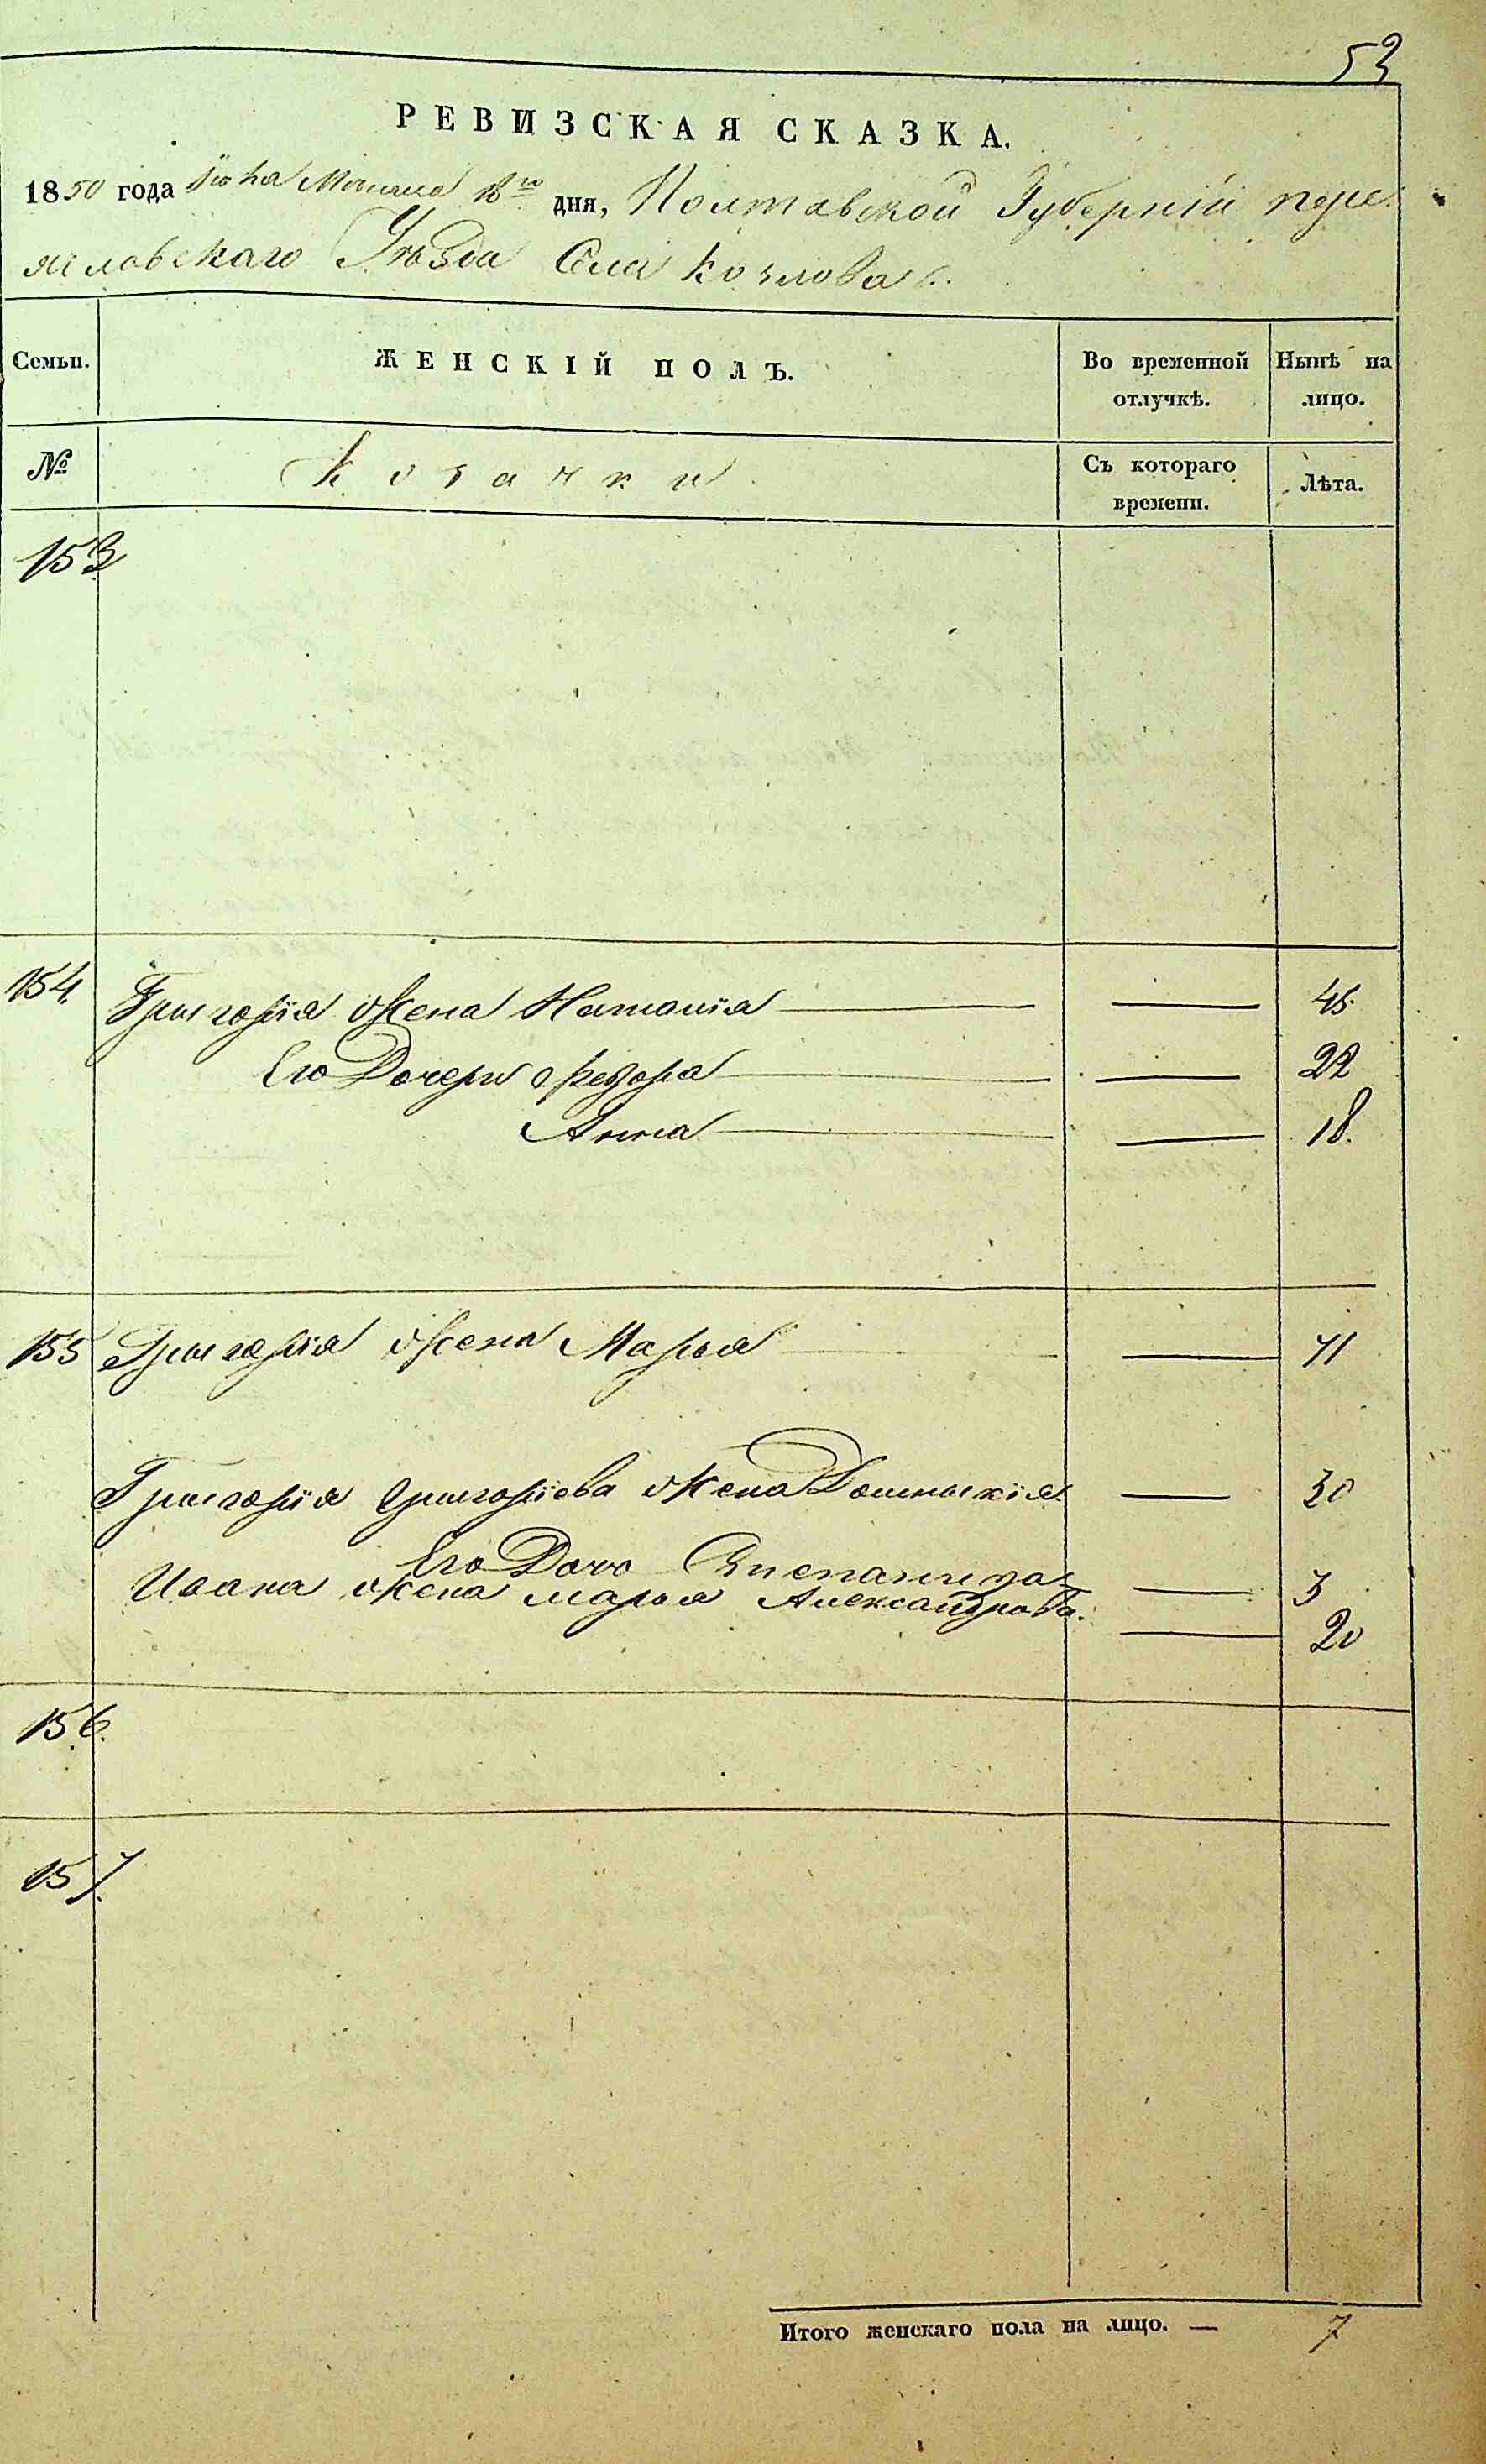 53
РЕВИЗСКАЯ СКАЗКА.
1850 года Июня Месяца дня, Полтавской Губерніи пере
яславскаго Уѣзда Села Козлова
Семьи. ЖЕНСКІЙ ПОЛЪ. Во временной отлучкѣ. Нынѣ на лицо.
№ Козачки Съ котораго времени. Лѣта.
153
154. Григорія Жена Наталія — — 45.
Его Дочери Федора — — 22
Анна — — 18.
155 Григорія жена Марья — — 71
Григорія Григоріева жена Домникія — 30
Его Дочь Степанида — 3
Ивана жена марья Александрова. — 20
156.
157.
Итого женскаго пола на лицо. — 7